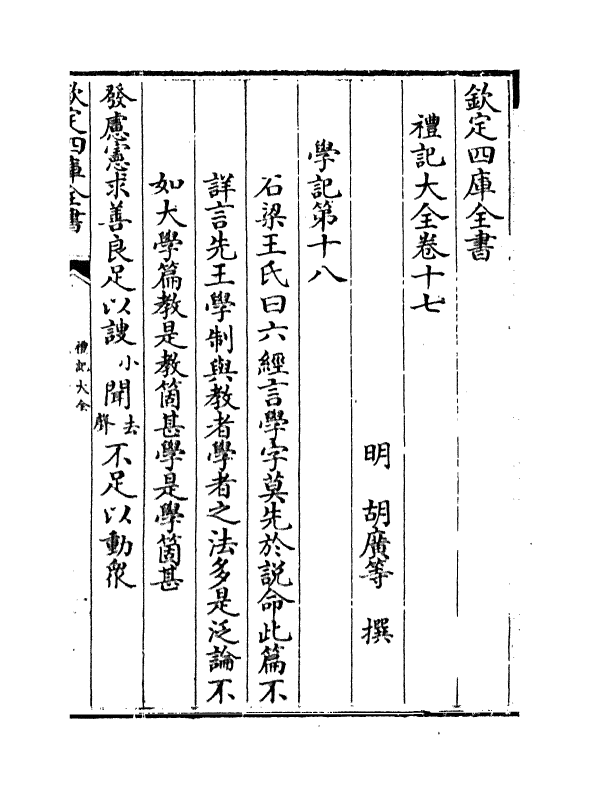 欽定四庫全書
禮記大全卷十七
明 胡廣等 撰
學記第十八
石梁王氏曰六經言學字莫先於説命此篇不
詳言先王學制與教者學者之法多是泛論不
如大學篇教是教箇甚學是學箇甚
發慮憲求善良足以謏小聞去聲不足以動衆
欽定四庫全書
禮記大全